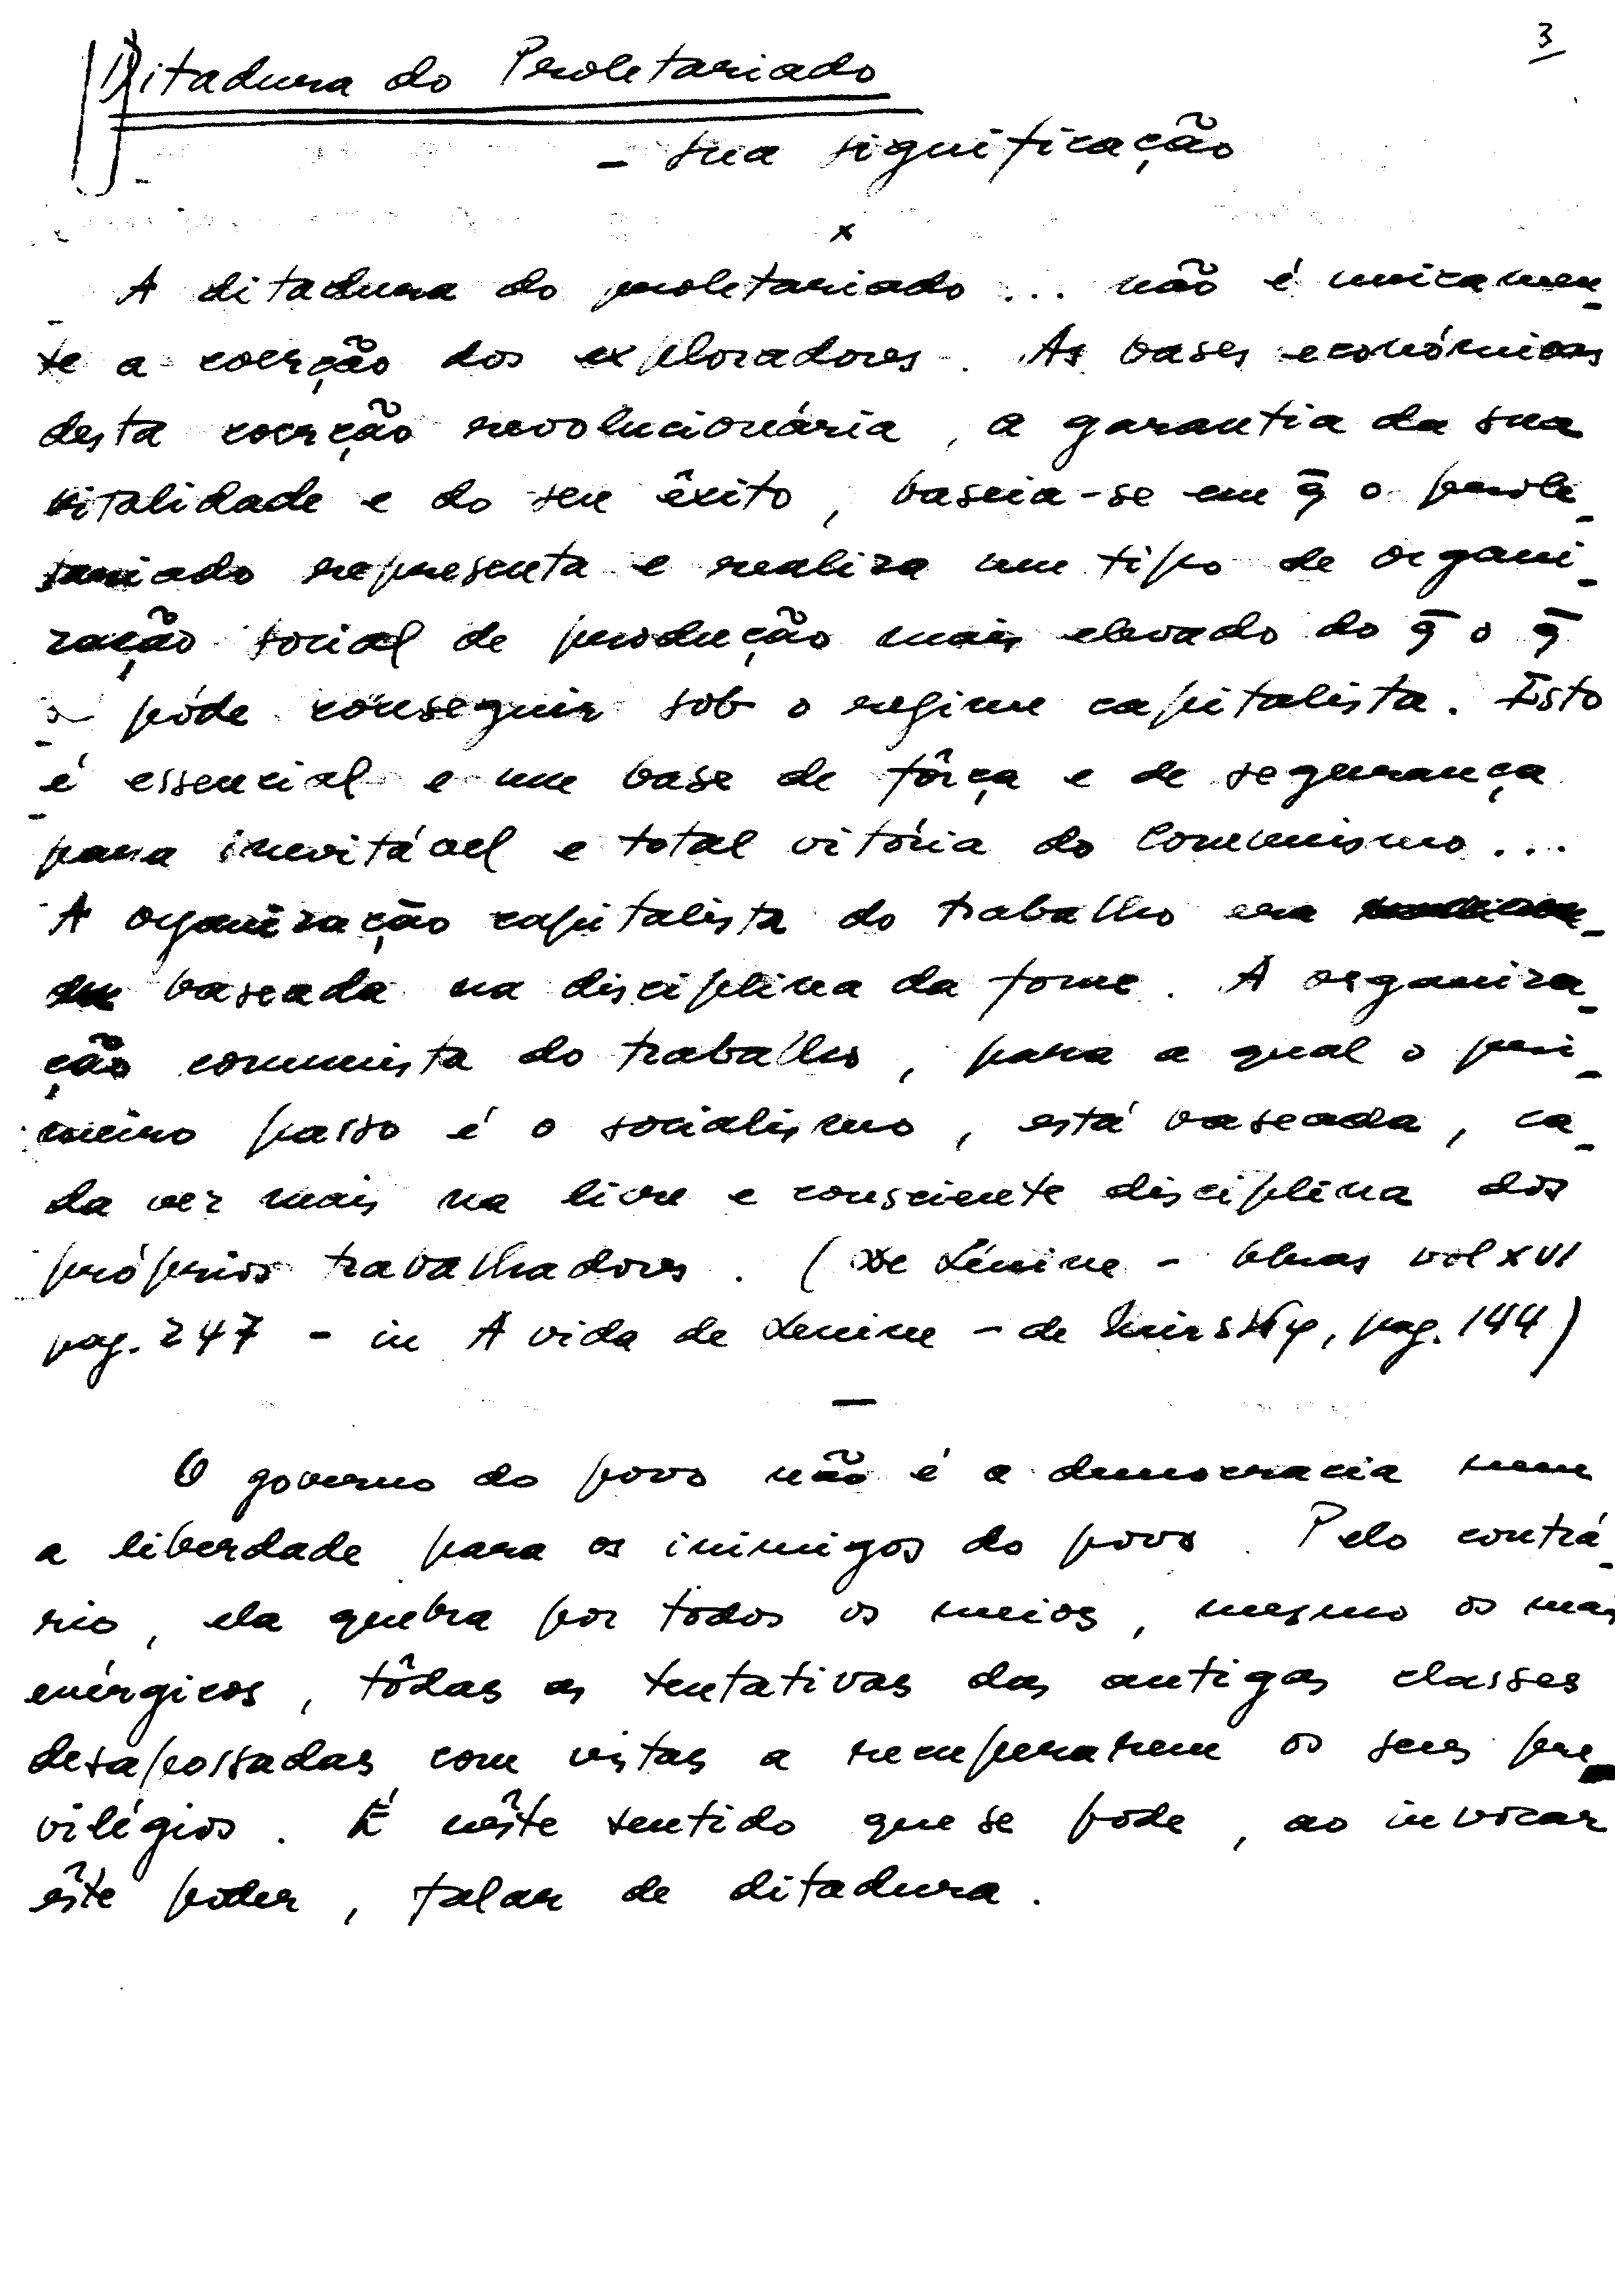 3
Ditadura do Proletariado
- sua significação
x
A ditadura do proletariado ... não é unicamen-
te a coerção dos exploradores. As bases económicas
desta coerção revolucionária, a garantia da sua
vitalidade e do seu êxito, baseia-se em q̄ o prole-
tariado representa e realiza um tipo de organi-
zação social de produção mais elevado do q̄ o q̄
se póde conseguir sob o regime capitalista. Isto
é essencial e um base de fôrça e de segurança
para inevitável e total vitória do Comunismo...
A organização capitalista do trabalho era
baseada na disciplina da fome. A organiza-
ção comunista do trabalho, para a qual o pri-
meiro passo é o socialismo, está baseada, ca-
da vez mais na livre e consciente disciplina dos
próprios trabalhadores. (De Lénine - Obras vol XVI
pag. 247 - in A vida de Lenine - de Mirsky, pag. 144)
—
O governo do povo não é a democracia nem
a liberdade para os inimigos do povo. Pelo contrá-
rio, ela quebra por todos os meios, mesmo os mais
enérgicos, tôdas as tentativas das antigas classes
desapossadas com vistas a recuperarem os seus pre-
vilégios. É nêste sentido que se pode, ao invocar
êste poder, falar de ditadura.